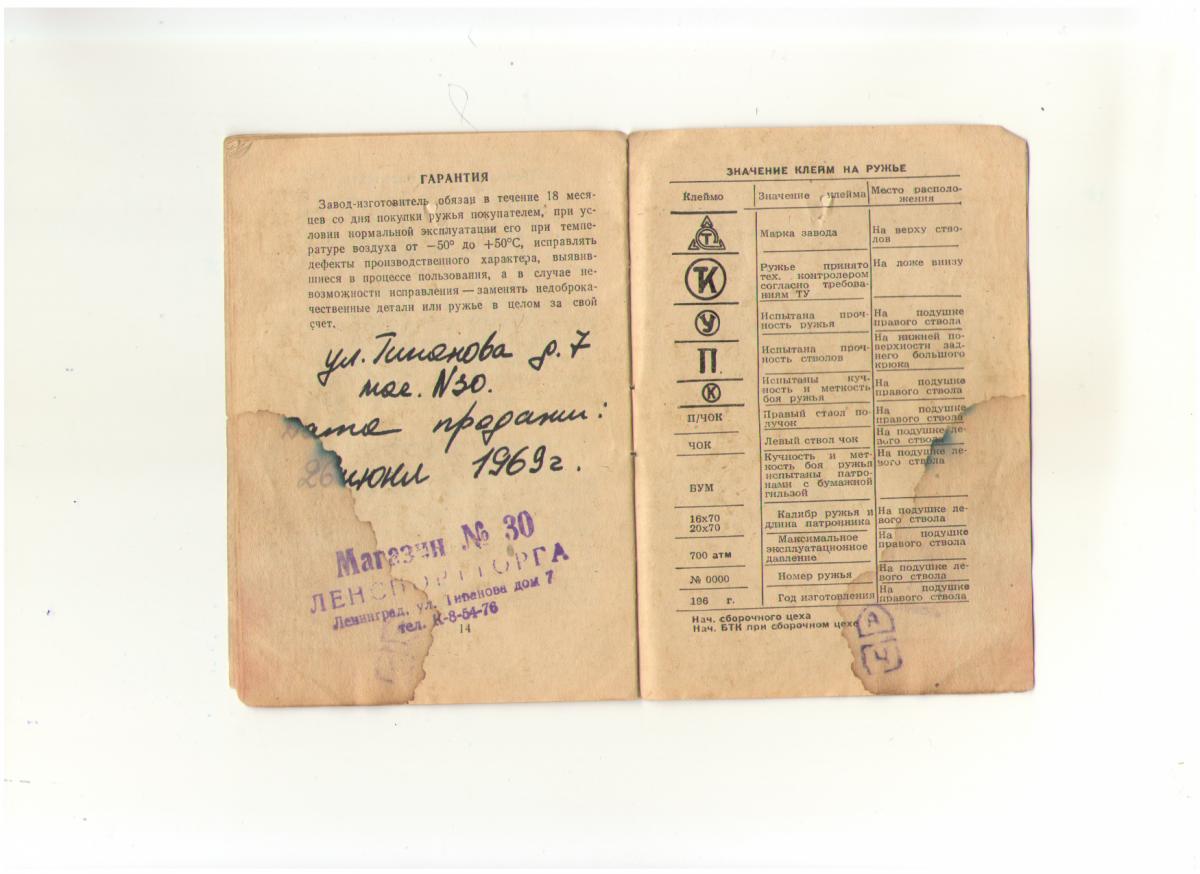 ГАРАНТИЯ
Завод-изготовитель обязан в течение 18 меся-
цев со дня покупки ружья покупателем, при ус-
ловии нормальной эксплуатации его при темпе-
ратуре воздуха от —50° до +50°С, исправлять
дефекты производственного характера, выявив-
шиеся в процессе пользования, а в случае не-
возможности исправления — заменять недоброка-
чественные детали или ружье в целом за свой
счет.
ул. Типанова д. 7
маг. N30.
дата продажи:
26 июня 1969 г.
Магазин № 30
ЛЕНСПОРТТОРГА
Ленинград, ул. Типанова дом 7
тел. К-8-54-76
14
ЗНАЧЕНИЕ КЛЕЙМ НА РУЖЬЕ
Клеймо Значение клейма Место располо-
жения
Т Марка завода На верху ство-
лов
ТК Ружье принято На ложе внизу
тех. контролером
согласно требова-
ниям ТУ
У Испытана проч- На подушке
ность ружья правого ствола
П Испытана проч- На нижней по-
ность стволов верхности зад-
него большого
крюка
К Испытаны куч- На подушке
ность и меткость правого ствола
боя ружья
П/ЧОК Правый ствол по- На подушке
лучок правого ствола
ЧОК Левый ствол чок На подушке ле-
вого ствола
БУМ Кучность и мет- На подушке ле-
кость боя ружья вого ствола
испытаны патро-
нами с бумажной
гильзой
16х70 Калибр ружья и На подушке ле-
20х70 длина патронника вого ствола
700 атм Максимальное На подушке
эксплуатационное правого ствола
давление
№ 0000 Номер ружья На подушке ле-
вого ствола
196 г. Год изготовления На подушке
правого ствола
Нач. сборочного цеха
Нач. БТК при сборочном цехе
А
Ч